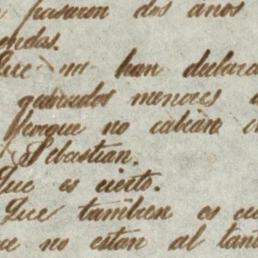 pasaron dos años
endas.
Que no han declara
quinados menores
Porque no cabian in
Sebastian.
Que es cierto.
Que tambien es cie
ue no estan al tan